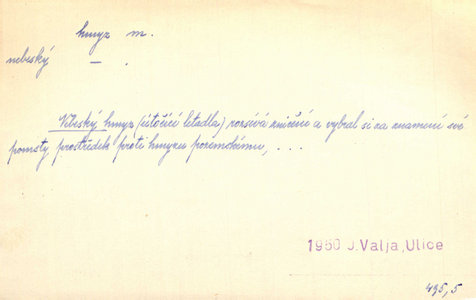 hmyz m.
nebeský — .
Nebeský hmyz (útočící letadla) rozsívá zničení a vybral si na znamení své
pomsty prostředek proti hmyzu pozemskému, ...
1960 J.Valja,Ulice
495,5